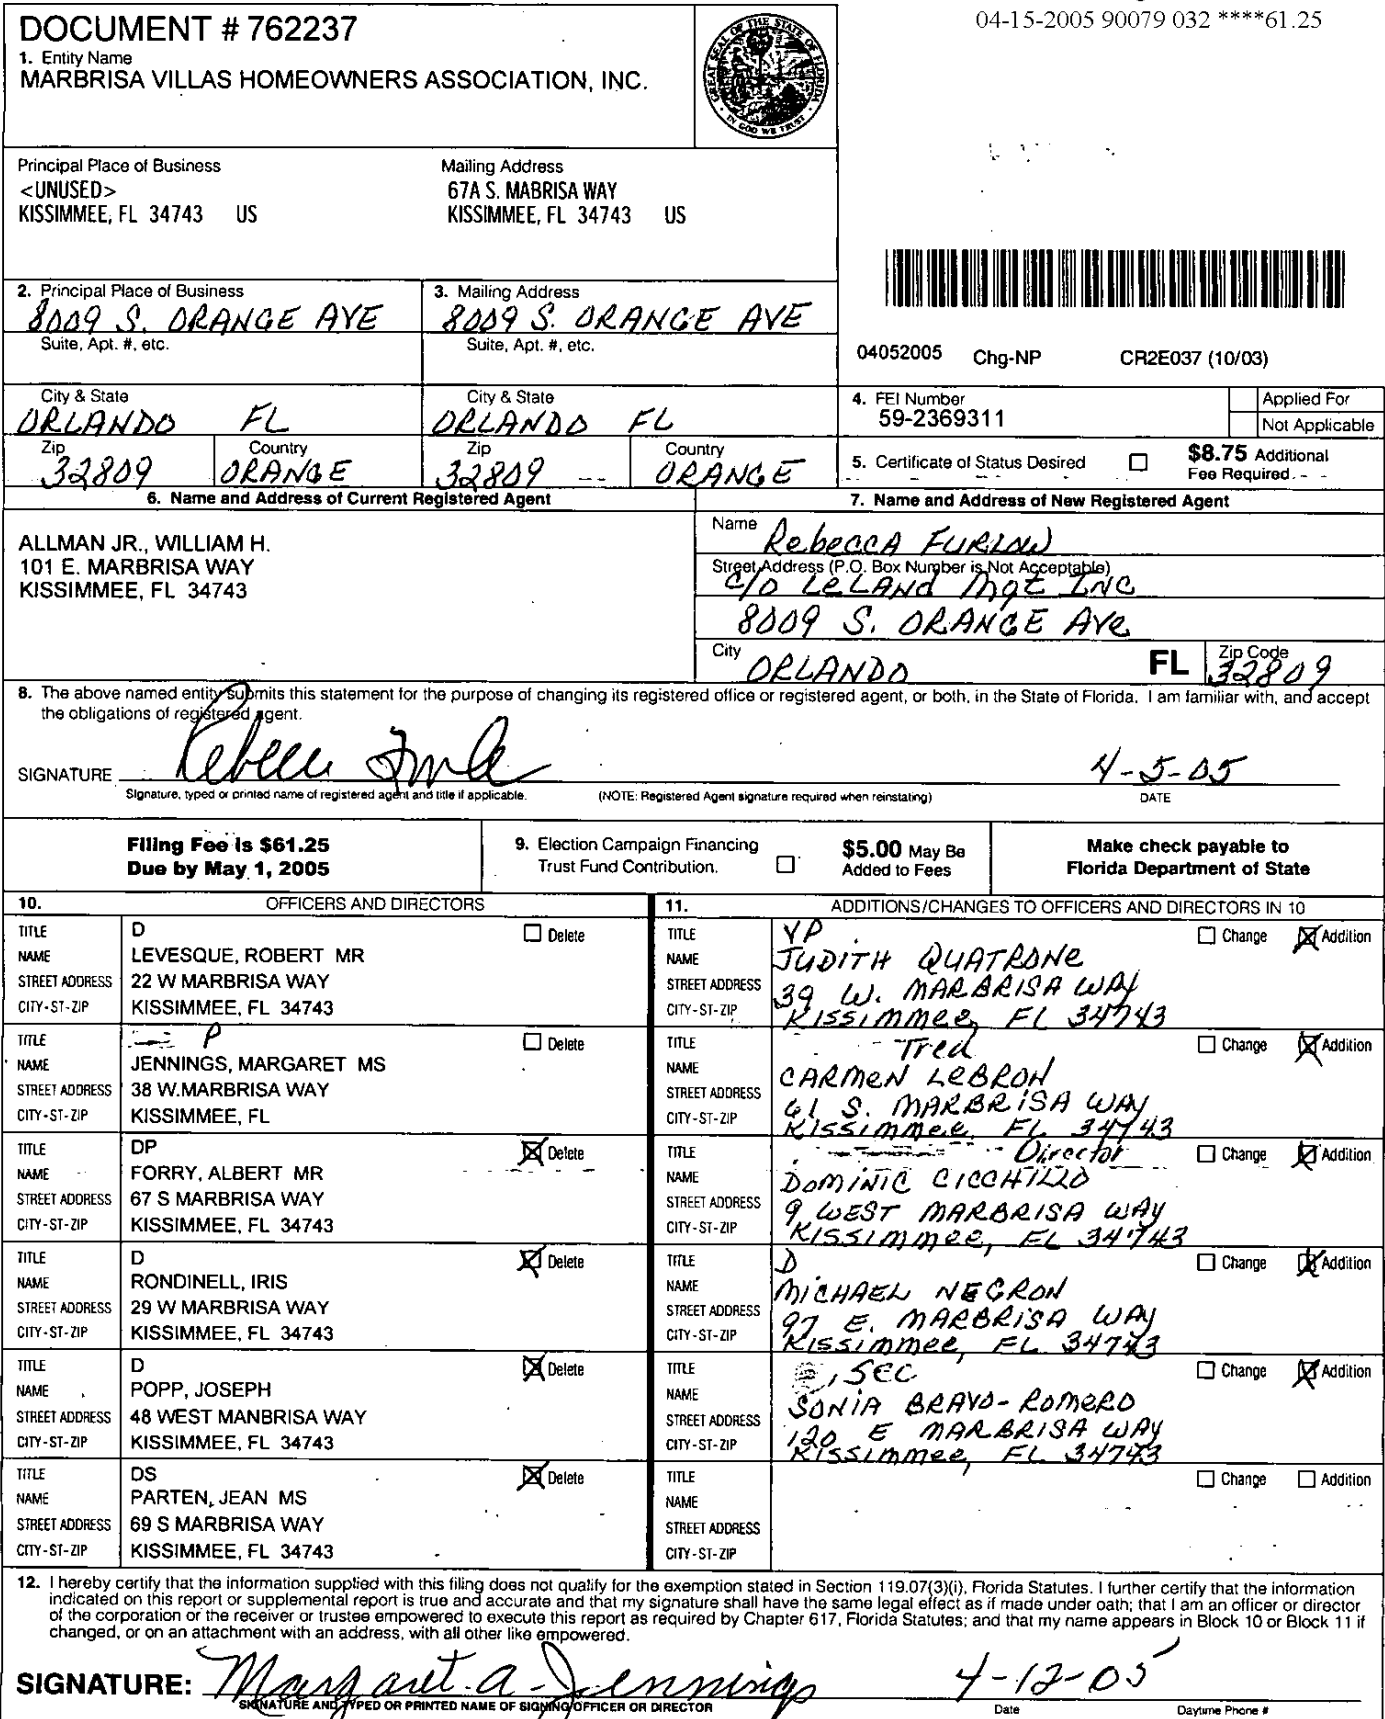 04-15-2005 90079 032 ****61.25
DOCUMENT # 762237
1. Entity Name
MARBRISA VILLAS HOMEOWNERS ASSOCIATION, INC.
GREAT SEAL OF THE STATE OF FLORIDA
IN GOD WE TRUST
Principal Place of Business
<UNUSED>
KISSIMMEE, FL 34743 US
Mailing Address
67A S. MABRISA WAY
KISSIMMEE, FL 34743 US
2. Principal Place of Business
8009 S. ORANGE AVE
Suite, Apt. #, etc.
3. Mailing Address
8009 S. ORANGE AVE
Suite, Apt. #, etc.
04052005 Chg-NP CR2E037 (10/03)
City & State
ORLANDO FL
City & State
ORLANDO FL
Zip
32809
Country
ORANGE
Zip
32809
Country
ORANGE
4. FEI Number
59-2369311
Applied For
Not Applicable
5. Certificate of Status Desired
$8.75 Additional
Fee Required
6. Name and Address of Current Registered Agent
ALLMAN JR., WILLIAM H.
101 E. MARBRISA WAY
KISSIMMEE, FL 34743
7. Name and Address of New Registered Agent
Name Rebecca FURLOW
Street Address (P.O. Box Number is Not Acceptable)
C/O LeLAND Mgt INC
8009 S. ORANGE AVe
City ORLANDO FL Zip Code 32809
8. The above named entity submits this statement for the purpose of changing its registered office or registered agent, or both, in the State of Florida. I am familiar with, and accept
the obligations of registered agent.
SIGNATURE 4-5-05
Signature, typed or printed name of registered agent and title if applicable. (NOTE: Registered Agent signature required when reinstating) DATE
Filing Fee is $61.25
Due by May 1, 2005
9. Election Campaign Financing
Trust Fund Contribution.
$5.00 May Be
Added to Fees
Make check payable to
Florida Department of State
10. OFFICERS AND DIRECTORS
TITLE D Delete
NAME LEVESQUE, ROBERT MR
STREET ADDRESS 22 W MARBRISA WAY
CITY-ST-ZIP KISSIMMEE, FL 34743
TITLE P Delete
NAME JENNINGS, MARGARET MS
STREET ADDRESS 38 W.MARBRISA WAY
CITY-ST-ZIP KISSIMMEE, FL
TITLE DP Delete
NAME FORRY, ALBERT MR
STREET ADDRESS 67 S MARBRISA WAY
CITY-ST-ZIP KISSIMMEE, FL 34743
TITLE D Delete
NAME RONDINELL, IRIS
STREET ADDRESS 29 W MARBRISA WAY
CITY-ST-ZIP KISSIMMEE, FL 34743
TITLE D Delete
NAME POPP, JOSEPH
STREET ADDRESS 48 WEST MANBRISA WAY
CITY-ST-ZIP KISSIMMEE, FL 34743
TITLE DS Delete
NAME PARTEN, JEAN MS
STREET ADDRESS 69 S MARBRISA WAY
CITY-ST-ZIP KISSIMMEE, FL 34743
11. ADDITIONS/CHANGES TO OFFICERS AND DIRECTORS IN 10
TITLE VP Change Addition
NAME JUDITH QUATRONe
STREET ADDRESS 39 W. MARBRISA WAY
CITY-ST-ZIP KISSIMMee, FL 34743
TITLE Trea Change Addition
NAME CARMeN LeBRON
STREET ADDRESS 61 S. MARBRISA WAY
CITY-ST-ZIP KISSIMMee, FL 34743
TITLE Director Change Addition
NAME DOMINIC CICCHILLO
STREET ADDRESS 9 WEST MARBRISA WAY
CITY-ST-ZIP KISSIMMee, FL 34743
TITLE D Change Addition
NAME MICHAEL NEGRON
STREET ADDRESS 97 E. MARBRISA WAY
CITY-ST-ZIP KISSIMMee, FL 34743
TITLE , SEC Change Addition
NAME SONIA BRAVO-ROMERO
STREET ADDRESS 120 E MARBRISA WAY
CITY-ST-ZIP KISSIMMee, FL 34743
TITLE Change Addition
NAME
STREET ADDRESS
CITY-ST-ZIP
12. I hereby certify that the information supplied with this filing does not qualify for the exemption stated in Section 119.07(3)(i), Florida Statutes. I further certify that the information
indicated on this report or supplemental report is true and accurate and that my signature shall have the same legal effect as if made under oath; that I am an officer or director
of the corporation or the receiver or trustee empowered to execute this report as required by Chapter 617, Florida Statutes; and that my name appears in Block 10 or Block 11 if
changed, or on an attachment with an address, with all other like empowered.
SIGNATURE: Margaret A. Jennings 4-12-05
SIGNATURE AND TYPED OR PRINTED NAME OF SIGNING OFFICER OR DIRECTOR Date Daytime Phone #